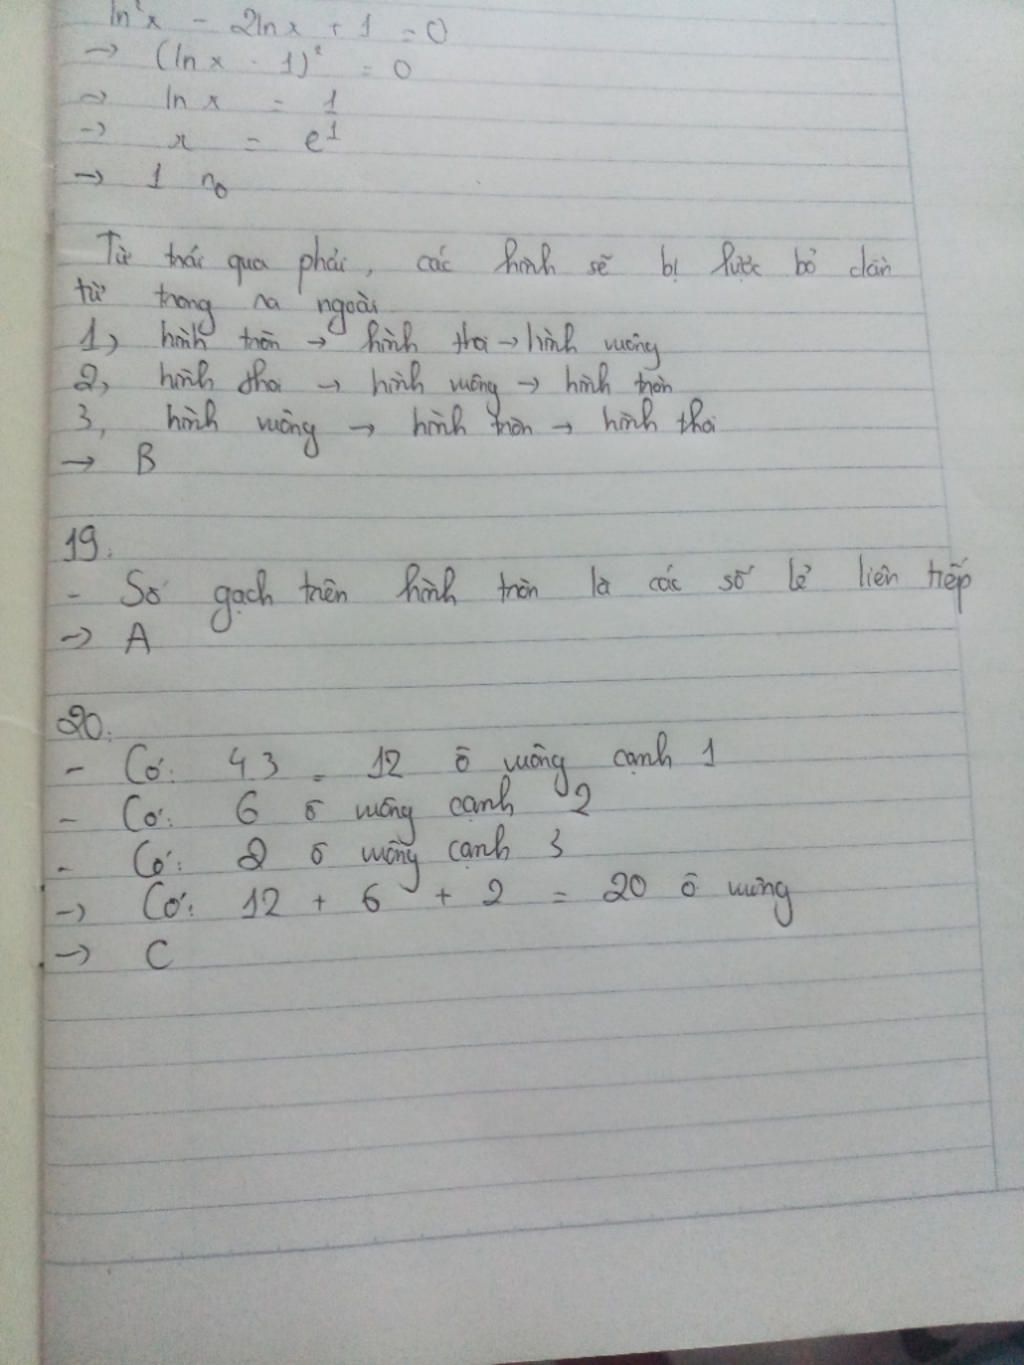 ln²x - 2lnx + 1 = 0
→ (lnx - 1)² = 0
→ lnx = 1
→ x = e¹
→ 1 no
Từ trái qua phải, các hình sẽ bị lược bỏ dần
từ trong ra ngoài
1, hình tròn → hình thoi → hình vuông
2, hình thoi → hình vuông → hình tròn
3, hình vuông → hình tròn → hình thoi
→ B
19.
- Số gạch trên hình tròn là các số lẻ liên tiếp
→ A
20.
- Có: 4.3 = 12 ô vuông cạnh 1
- Có: 6 ô vuông cạnh 2
- Có: 2 ô vuông cạnh 3
→ Có: 12 + 6 + 2 = 20 ô vuông
→ C